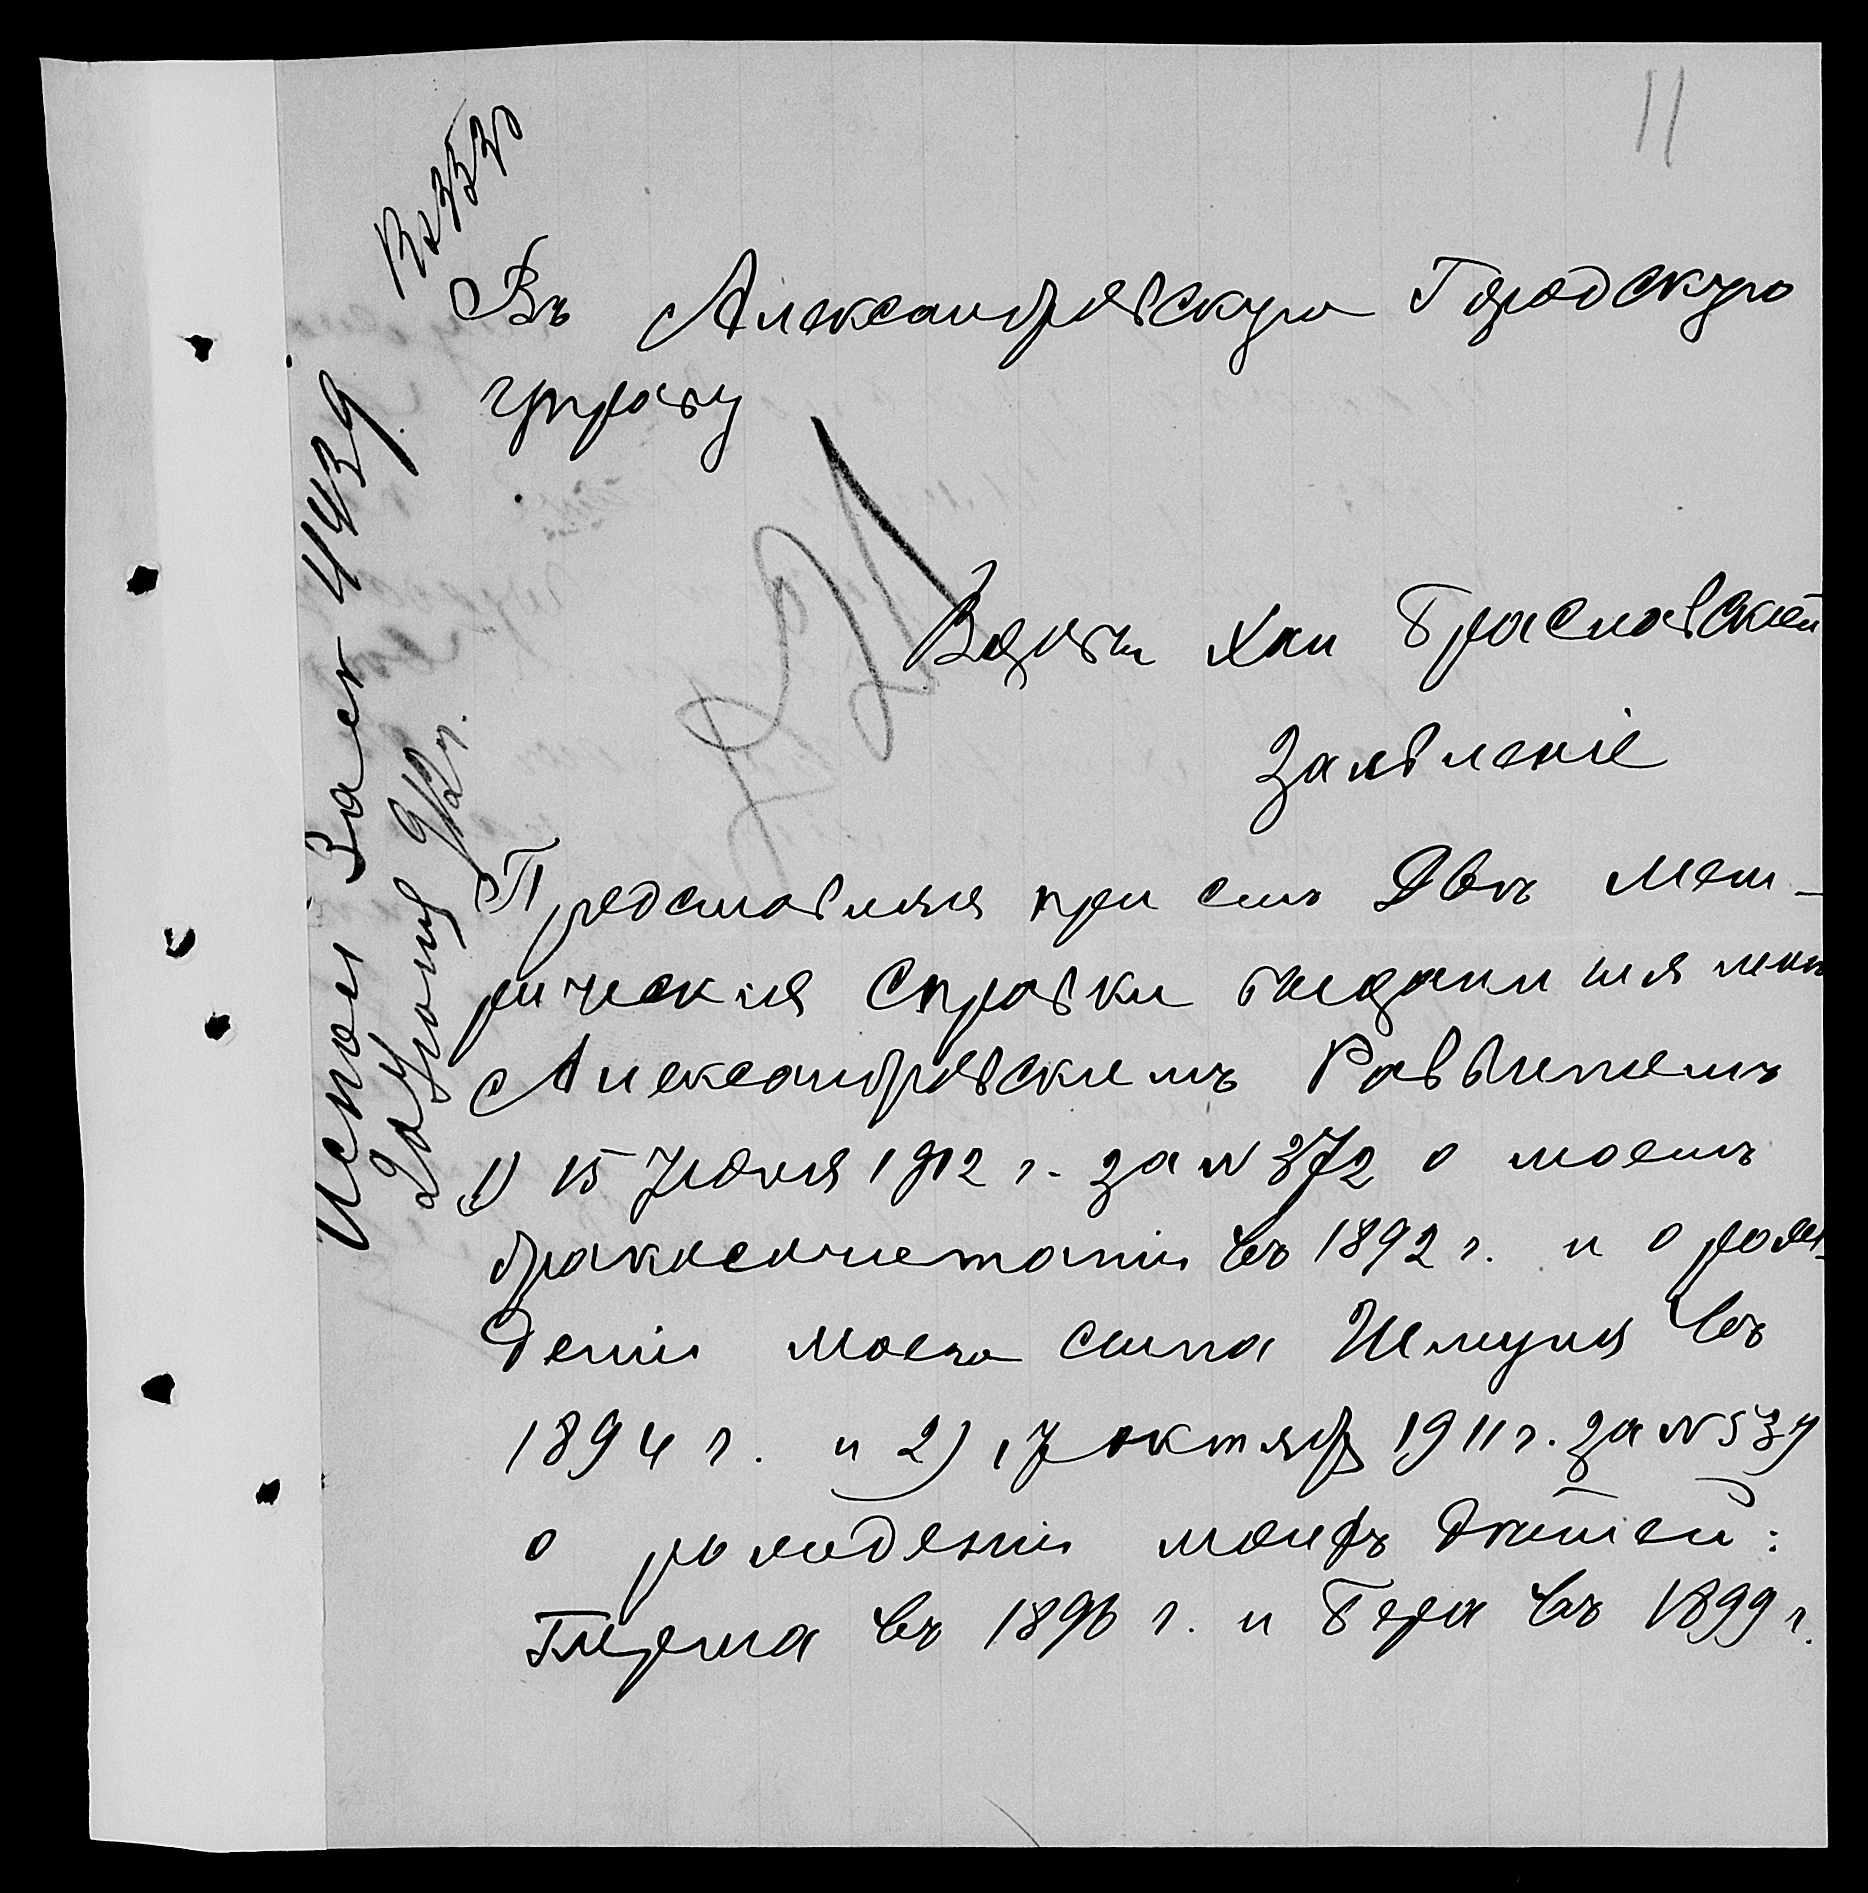 11
Въ Александровскую Городскую
управу
Вдовы Хаи Браславской
Заявленіе
Представляя при семъ Двѣ мет-
рическія Справки выданныя мнѣ
Александровскимъ Раввиномъ
1) 15 Іюня 1912 г. за N 372 о моемъ
бракосочетаніи въ 1892 г. и о рож-
деніи моего сына Шмуля въ
1894 г. и 2) 17 октября 1911 г. за N 539
о рожденіи моихъ дѣтей:
въ 1896 г. и Бера въ 1899 г.
Испол 4439